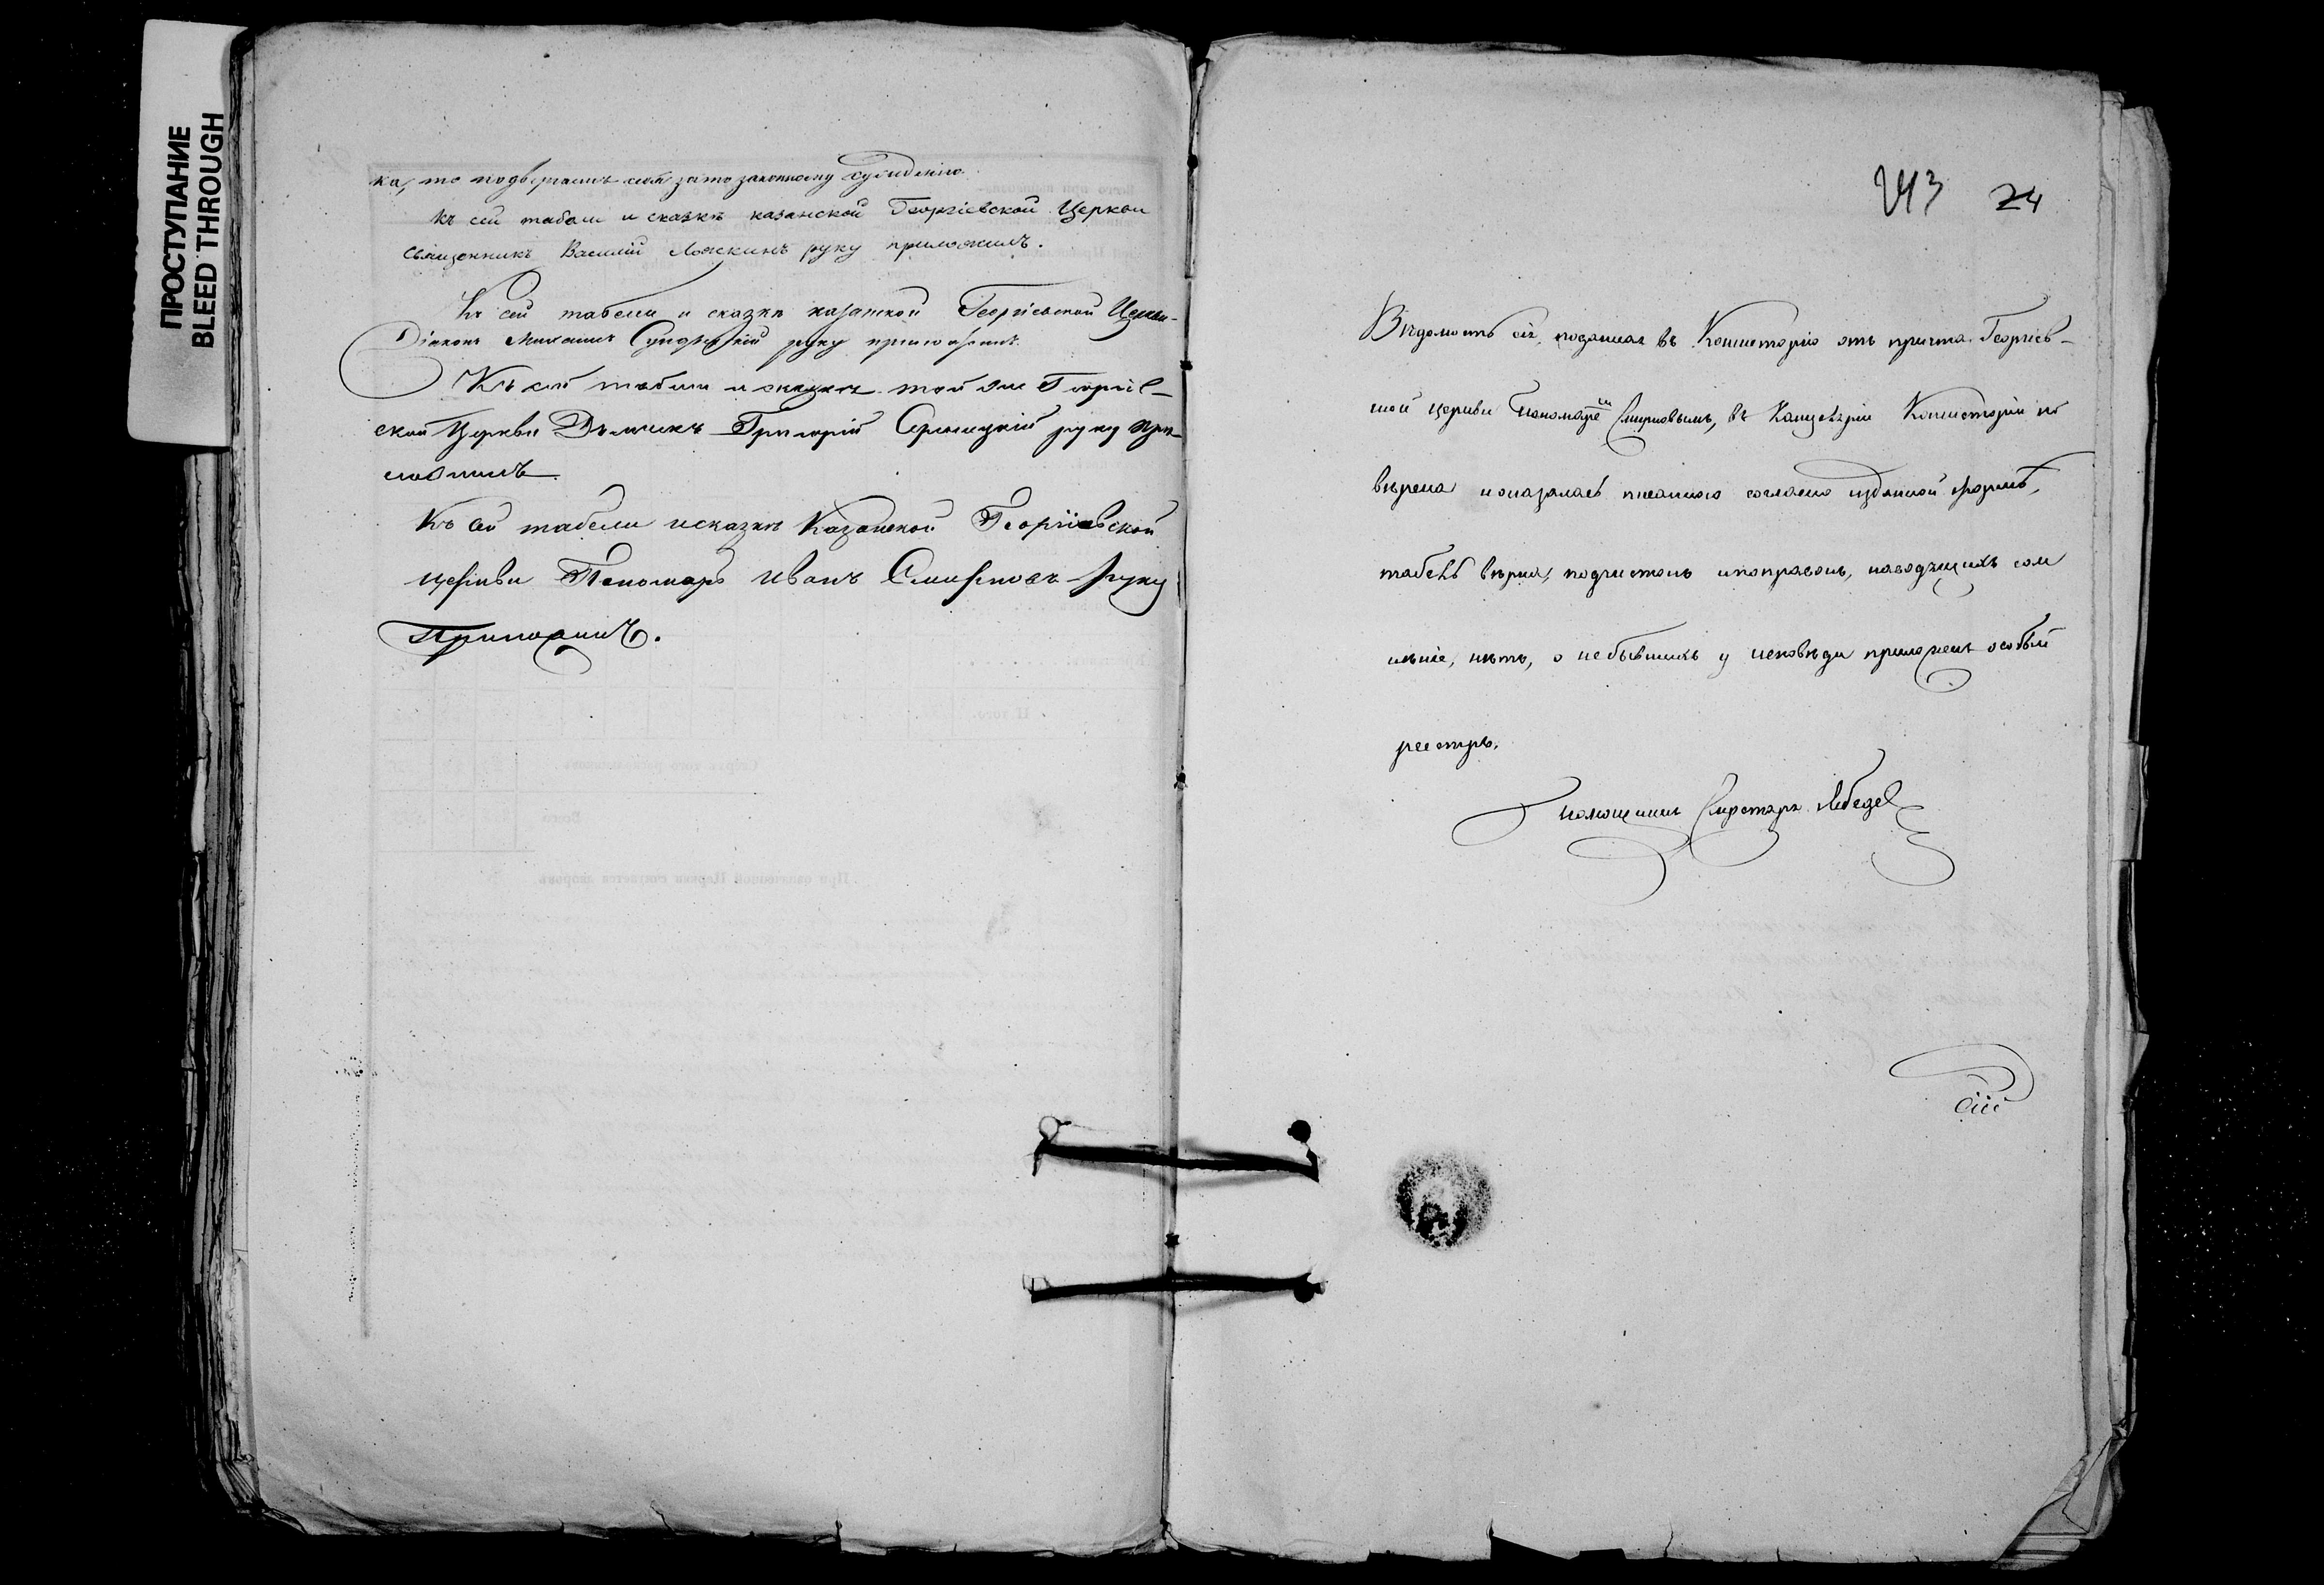 ПРОСТУПАНИЕ
BLEED THROUGH
ка, то подвергаемъ себя за то законному сужденію.
Къ сей табели и сказкѣ казанской Георгіевской Церкви
священникъ Василій Ложкинъ руку приложилъ.
Къ сей табели и сказкѣ казанской Георгіевской Церкви
Діаконъ Михаилъ руку приложилъ.
Къ сей табели и сказкѣ той же Георгіев-
ской Церкви Дьячикъ Григорій руку при-
ложилъ.
Къ сей табели и сказкѣ Казанской Георгіевской
церкви Пономарь Иванъ Смирновъ руку
Приложилъ.
24
Вѣдомость сія, поданная въ Консисторію отъ причта Георгіев-
ской церкви Пономаремъ Смирновымъ, въ Канцеляріи Консисторіи по
вѣрена и оказалась писанною согласно изданной формѣ,
табель вѣрна, подчистокъ и поправокъ, наводящихъ сом
нѣніе, нѣтъ, о небывшихъ у исповѣди приложенъ особый
реестръ.
Помощникъ Секретаря Лебедев